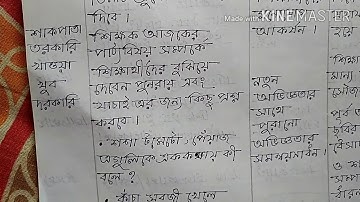 দিবে।
শাকপাতা
তরকারি
খাওয়া
খুব
দরকারি
শিক্ষক আজকের
পাঠ্যবিষয় সম্পর্কে
শিক্ষার্থীদের বুঝিয়ে
দেবেন পুনরায় এবং
যাচাই এর জন্য কিছু প্রশ্ন
করবে।
• শশা টমেটো, পেঁয়াজ
এগুলিকে এককথায় কী
বলে?
• কাঁচা সবজী খেলে
আকর্ষন।
নতুন
অভিজ্ঞতার
সাথে
পুরানো
অভিজ্ঞতার
সমন্বয়সাধন।
Made with KINEMASTER